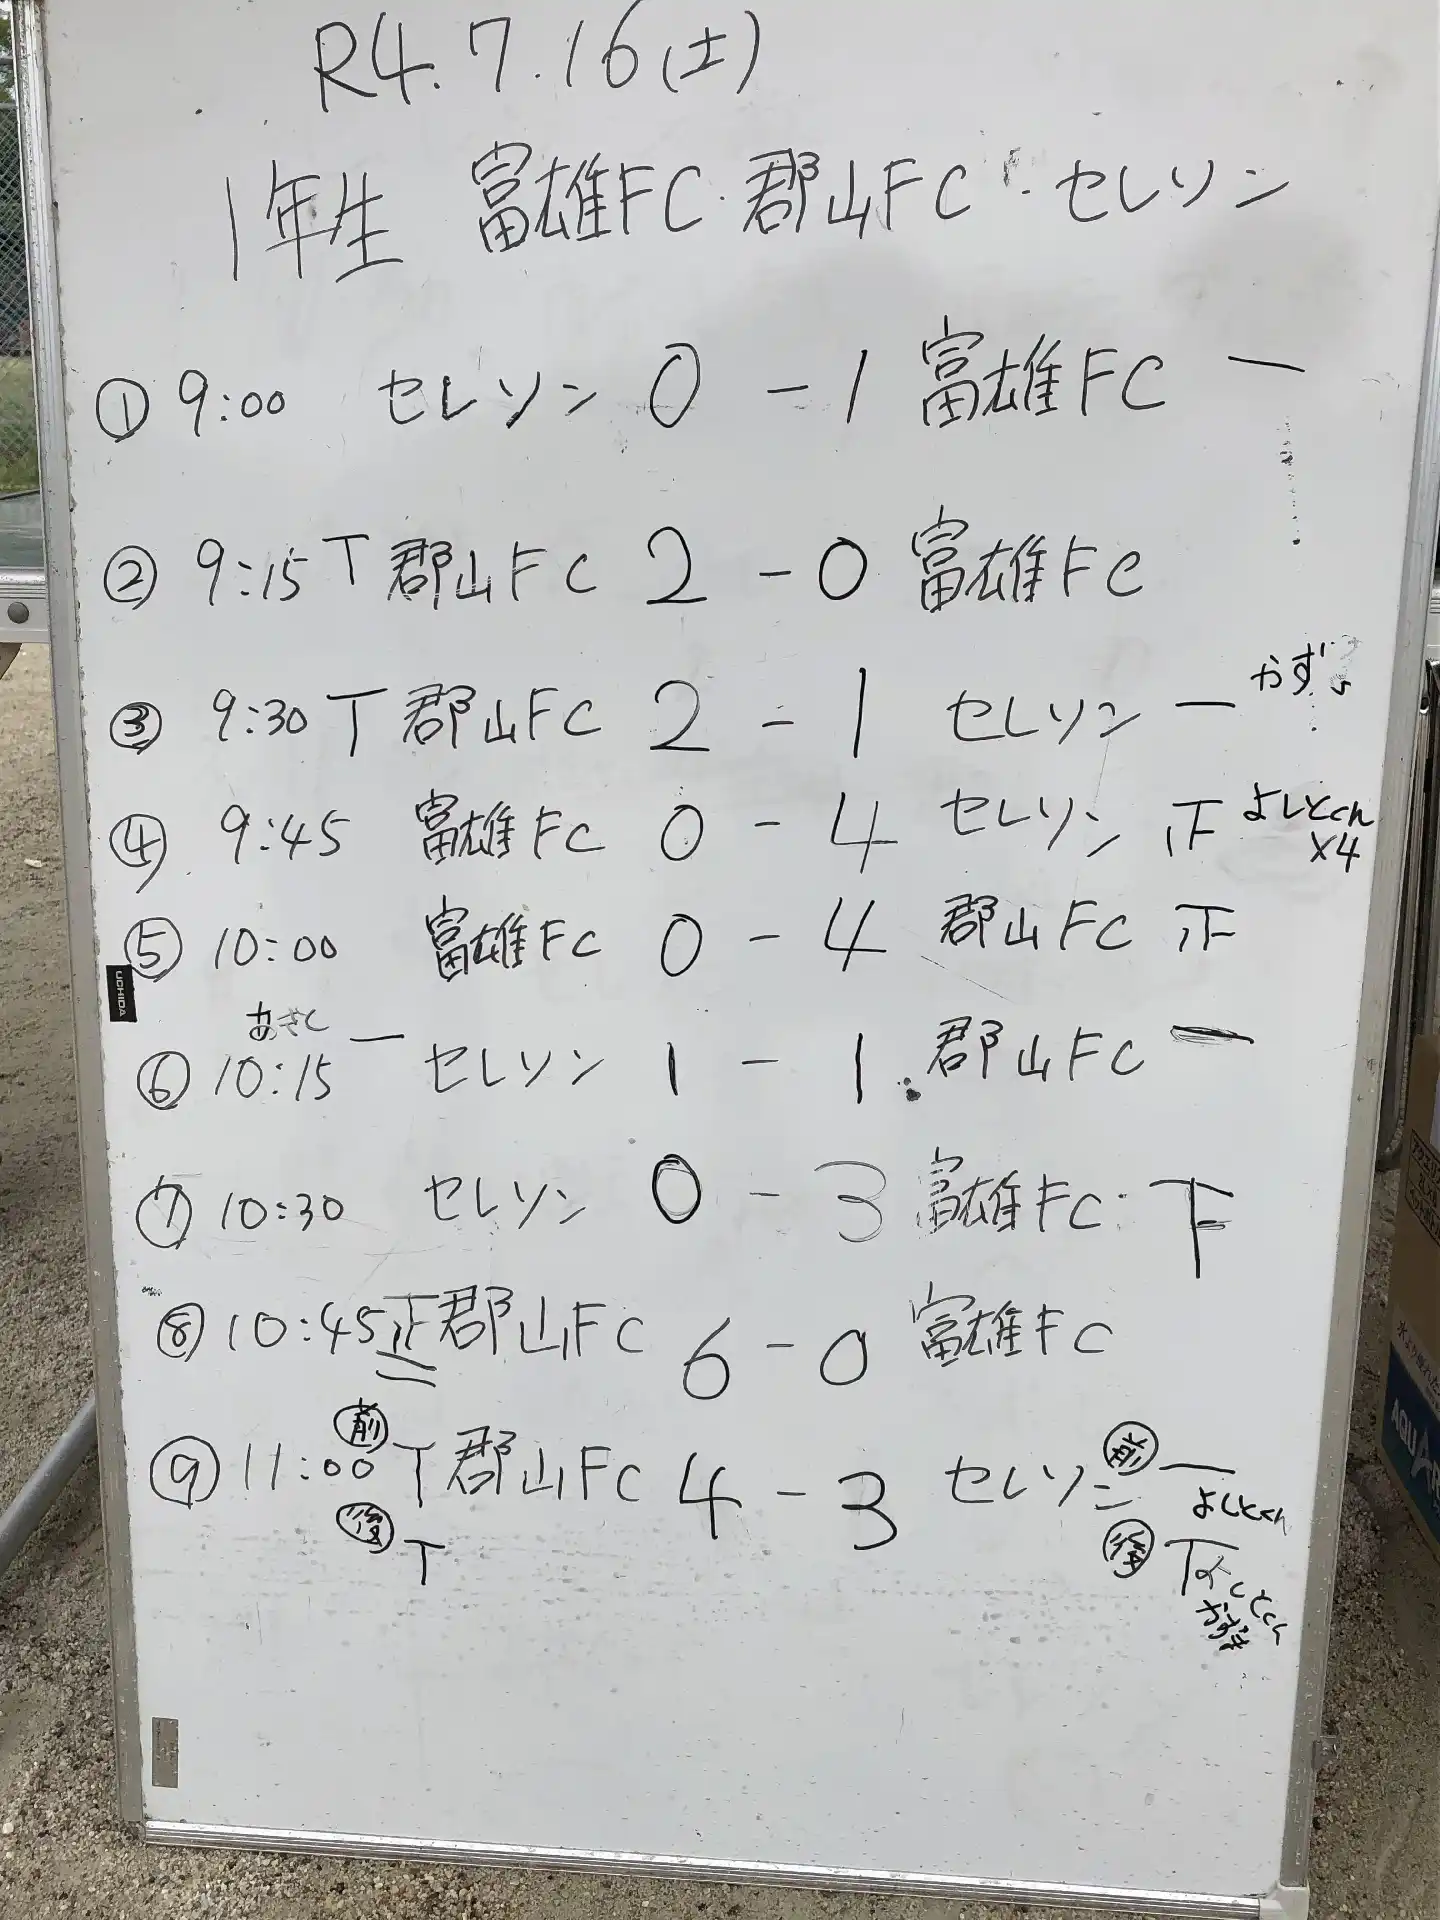 R4.7.16(土)
1年生 富雄FC・郡山FC・セレソン
① 9:00 セレソン 0 - 1 富雄FC 一
② 9:15 T 郡山FC 2 - 0 富雄FC
かずき
③ 9:30 T 郡山FC 2 - 1 セレソン 一
④ 9:45 富雄FC 0 - 4 セレソン 正 よしとくん
×4
⑤ 10:00 富雄FC 0 - 4 郡山FC 正
UCHIDA
⑥ 10:15 一 セレソン 1 - 1 郡山FC 一
⑦ 10:30 セレソン 0 - 3 富雄FC 下
⑧ 10:45 正 郡山FC 6 - 0 富雄FC
⑨ 11:00 前 T 郡山FC 4 - 3 セレソン 前 一
よしとくん
後 T 後 T よしとくん
かずき